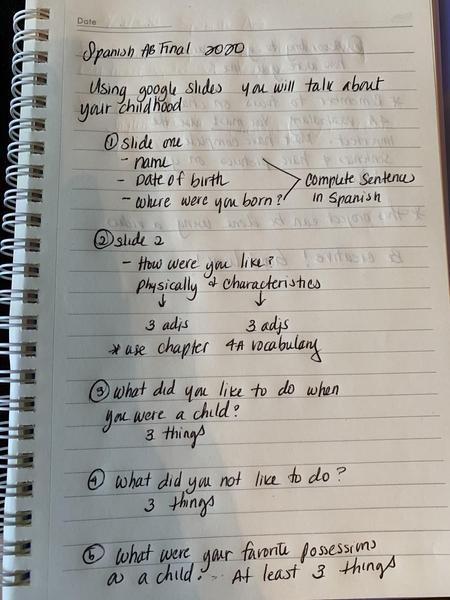 Date
Spanish AB Final 2020
Using google slides you will talk about
your childhood
① slide one
- name
- Date of birth
- where were you born?
complete sentences
in Spanish
② slide 2
- How were you like?
Physically & characteristics
↓ ↓
3 adjs 3 adjs
* use chapter 4A vocabulary
③ what did you like to do when
you were a child?
3 things
④ what did you not like to do?
3 things
⑤ what were your favorite possessions
as a child? - At least 3 things